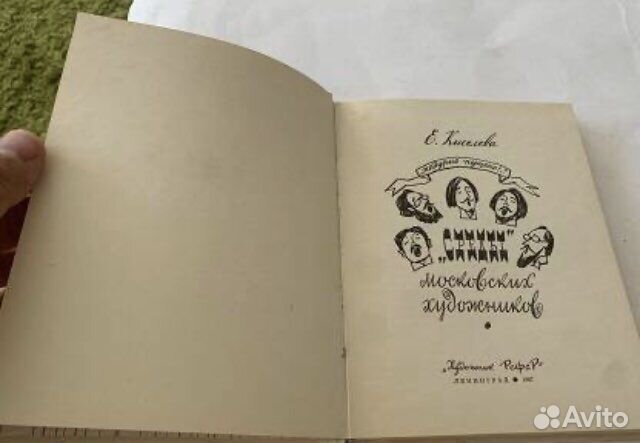 Е. Киселева
„СРЕДЫ"
московских
художников
„Художник РСФСР"
ЛЕНИНГРАД
Avito